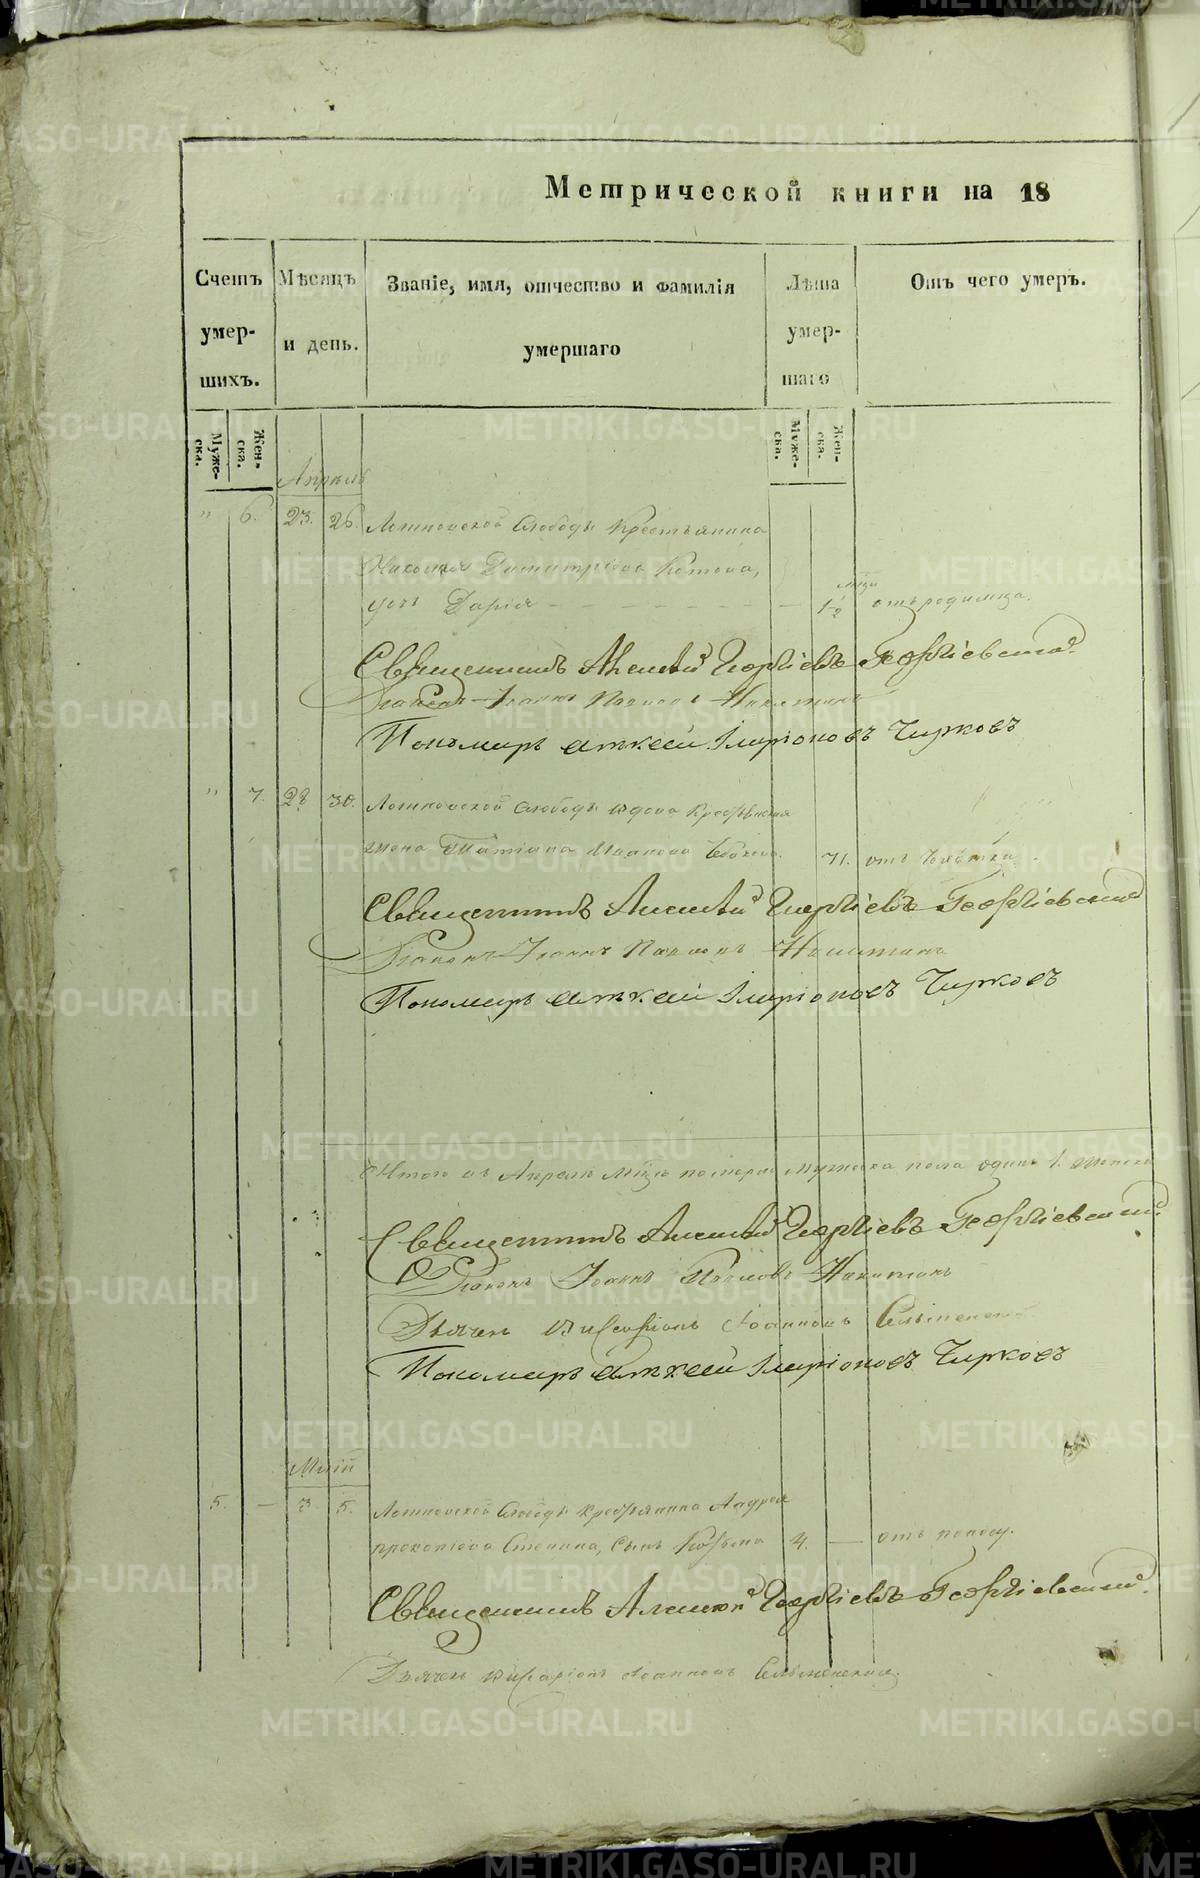 Метрической книги на 18
Счетъ умер-шихъ.
Мѣсяцъ и день.
Званіе, имя, отчество и фамилія умершаго
Лѣта умер-шаго
Отъ чего умеръ.
Муже-ска.
Жен-ска.
Муже-ска.
Жен-ска.
Апрель
" 6. 23. 26. Слободы Крестьянина
Николая Димитріева
дочь Дарія 1/2 отъ родимца.
Священникъ Алексѣй Георгіевъ Георгіевскій
Діаконъ Іоаннъ Павловъ Никитинъ
Пономарь Алексѣй Иларіоновъ Чирковъ
" 7. 28 30. Слободы вдова
жена Татіана Иванова 71. отъ
Священникъ Алексѣй Георгіевъ Георгіевскій
Діаконъ Іоаннъ Павловъ Никитинъ
Пономарь Алексѣй Иларіоновъ Чирковъ
Итого въ Апрелѣ мѣсяцѣ померло мужеска пола одинъ 1. женска
Священникъ Алексѣй Георгіевъ Георгіевскій
Діаконъ Іоаннъ Павловъ Никитинъ
Дьячекъ Виссаріонъ Іоанновъ
Пономарь Алексѣй Иларіоновъ Чирковъ
Маій
5. — 3. 5. Слободы Крестьянина Андрея
Прокопіева сынъ Козьма 4. — отъ поносу.
Священникъ Алексѣй Георгіевъ Георгіевскій
Дьячекъ Виссаріонъ Іоанновъ
METRIKI.GASO-URAL.RU